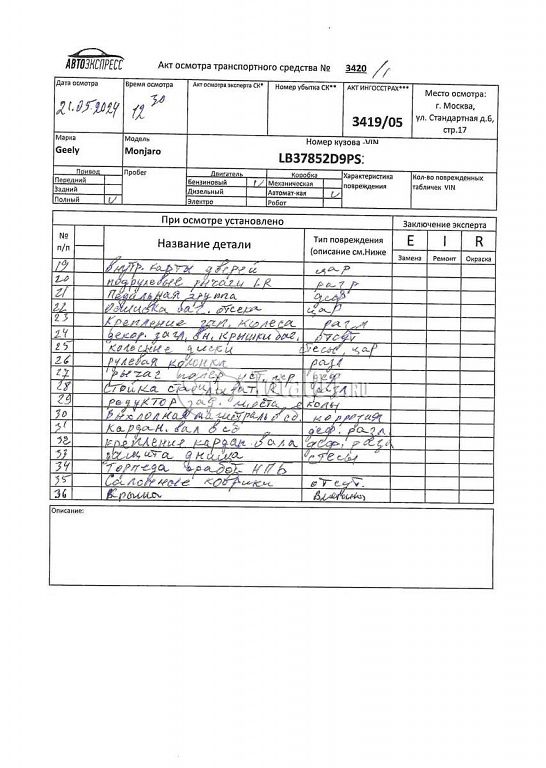 АВТОЭКСПРЕСС
Акт осмотра транспортного средства № 3420/1
Дата осмотра
Время осмотра
Акт осмотра эксперта СК*
Номер убытка СК**
АКТ ИНГОССТРАХ***
Место осмотра:
г. Москва,
ул. Стандартная д.6,
стр.17
21.05.2024
12 30
3419/05
Марка
Модель
Номер кузова -VIN
Geely
Monjaro
LB37852D9PS
Привод
Пробег
Двигатель
Коробка
Характеристика повреждения
Кол-во поврежденных табличек VIN
Передний
Бензиновый
Механическая
Задний
Дизельный
Автомат-кая
Полный V
Электро
Робот
При осмотре установлено
Заключение эксперта
№ п/п
Название детали
Тип повреждения (описание см.Ниже
E I R
Замена Ремонт Окраска
19 внутр. карты дверей цар
20 подрулевые рычаги LR разр
21 Педальная группа деф
22 Обшивка баг. отсека цар
23 Крепление зап. колеса разл
24 декор. загл. вн. крышки баг. отсут
25 колесные диски стесы, цар
26 рулевая колонка разл
27 рычаг попер деф
28 Стойка стабил. разл
29 редуктор зад. моста сколы
30 магистраль в сб. коррозия
31 Кардан. вал в сб деф. разл.
32 крепления кардан. вала деф. разл
33 защита днища стесы
34 Торпеда сработ. НПБ
35 Салонные коврики отсут.
36 Крыша Вмятина
Описание: